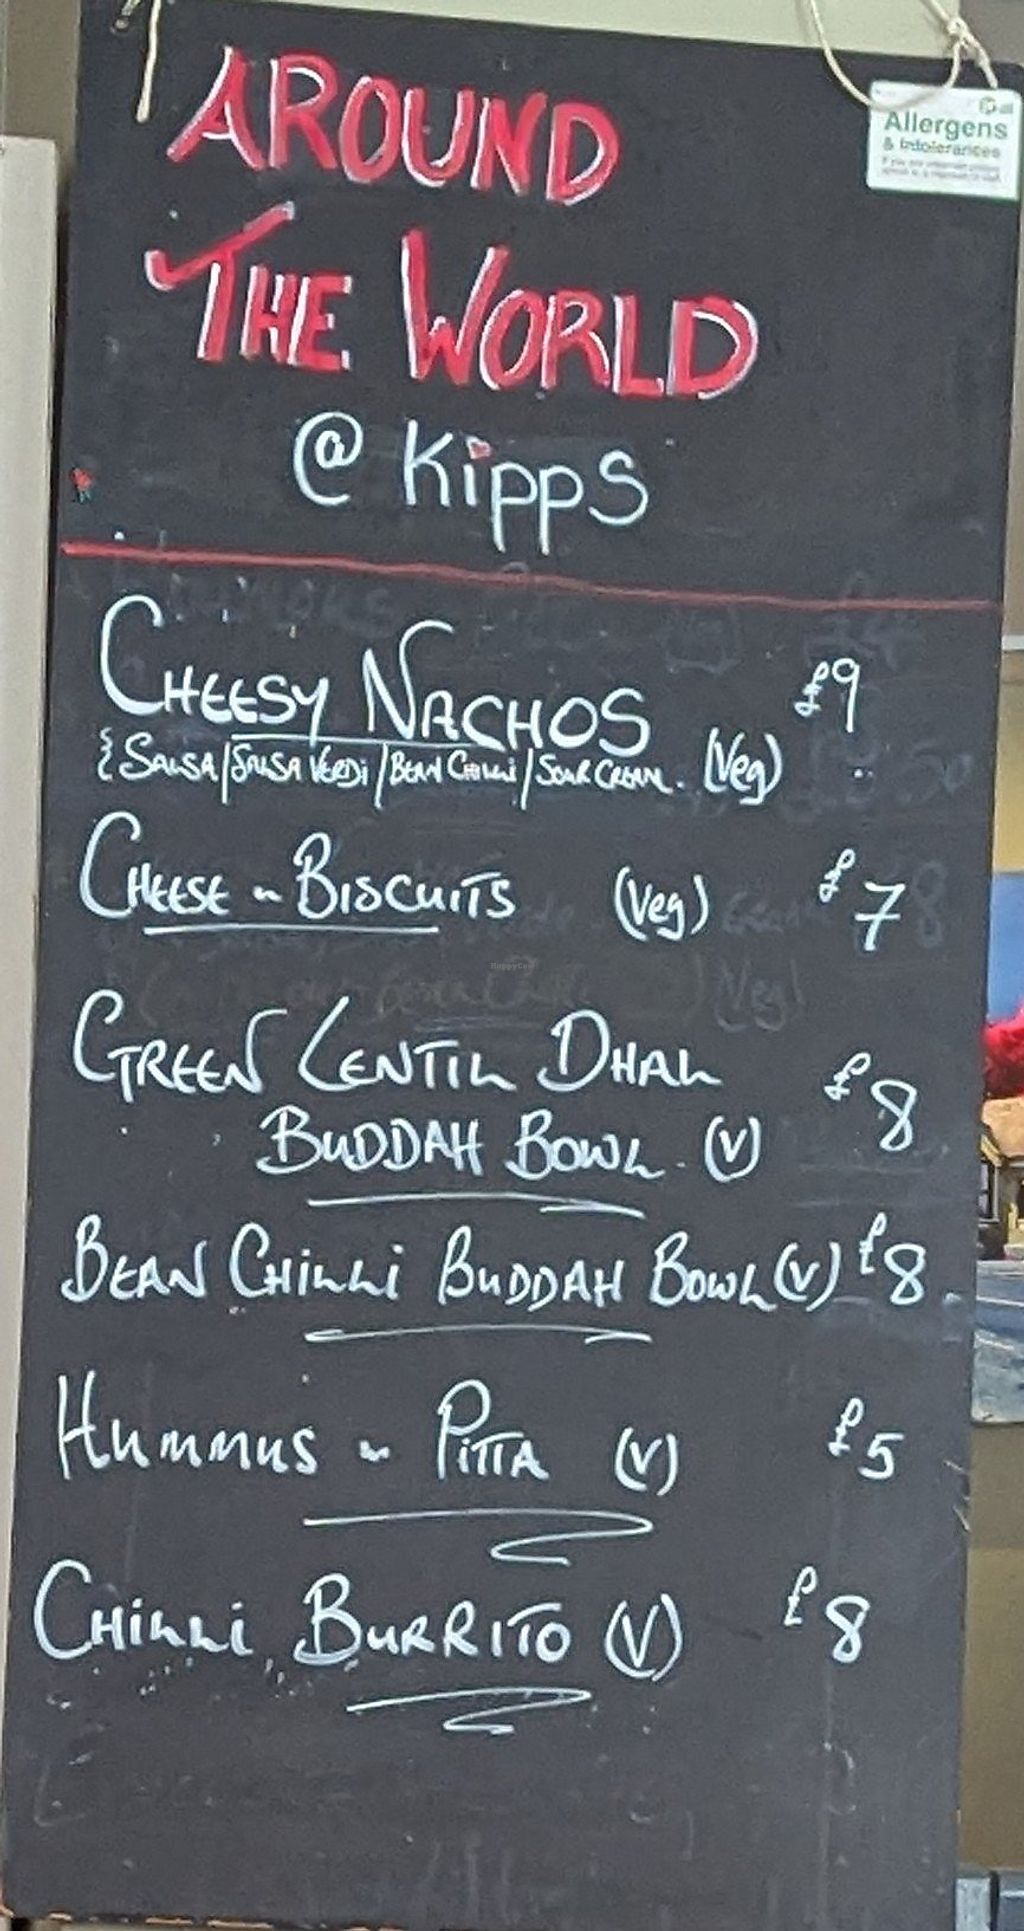 AROUND
THE WORLD
@ Kipps
Allergens
& Intolerances
CHEESY NACHOS £9
{SALSA/SALSA VERDI/BEAN CHILLI/SOUR CREAM. (Veg)
CHEESE n BISCUITS (Veg) £7
GREEN LENTIL DHAL £8
BUDDAH BOWL. (V)
BEAN CHILLI BUDDAH BOWL (V) £8
HUMMUS n PITTA (V) £5
CHILLI BURRITO (V) £8